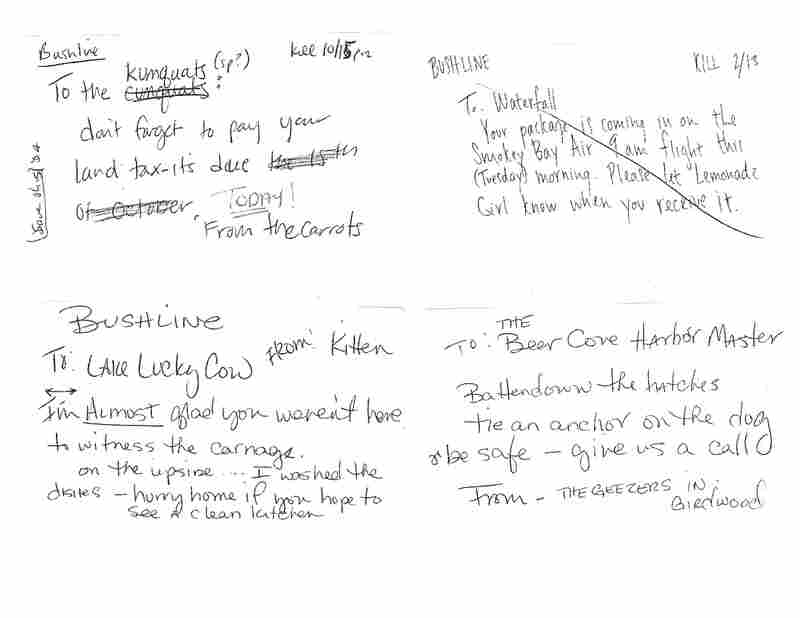 Bushline
kill 10/15 p.m.
kumquats (sp?)
To the cumquats :
don't forget to pay your
land tax-it's due the 15th
of October. TODAY!
From the Carrots
BUSHLINE
KILL 2/13
To: Waterfall
Your package is coming in on the
Smokey Bay Air 9 am flight this
(Tuesday) morning. Please let Lemonade
Girl know when you receive it.
BUSHLINE
To: LAKE LUCKY COW FROM: Kitten
I'm ALMOST glad you weren't here
to witness the carnage.
on the upside ... I washed the
dishes - hurry home if you hope to
see a clean kitchen
THE
TO: Beer Cove HARBOR MASTER
Battendown the hatches
tie an anchor on the dog
& be safe - give us a call
From - THE GEEZERS IN
Birdwood